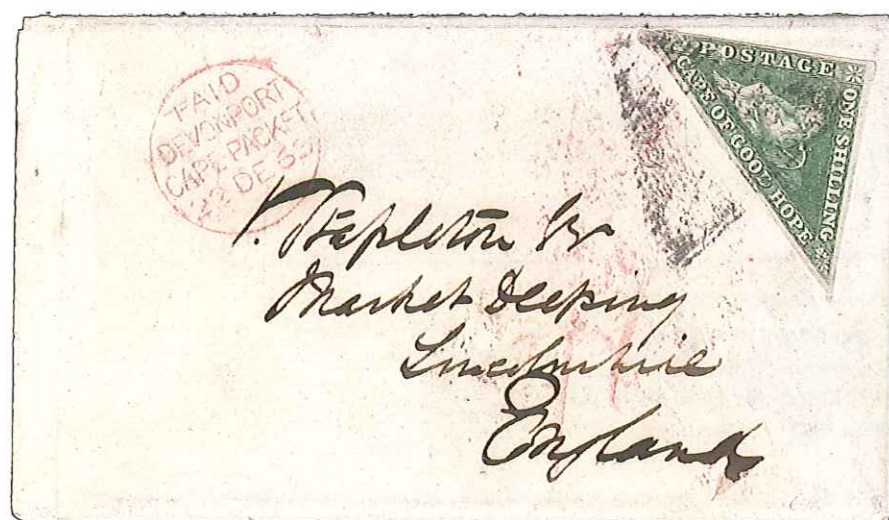 PAID
DEVONPORT
CAPE PACKET
22 DE 63
POSTAGE
ONE SHILLING
CAPE OF GOOD HOPE
V. Stapleton Esq
Market Deeping
Lincolnshire
England